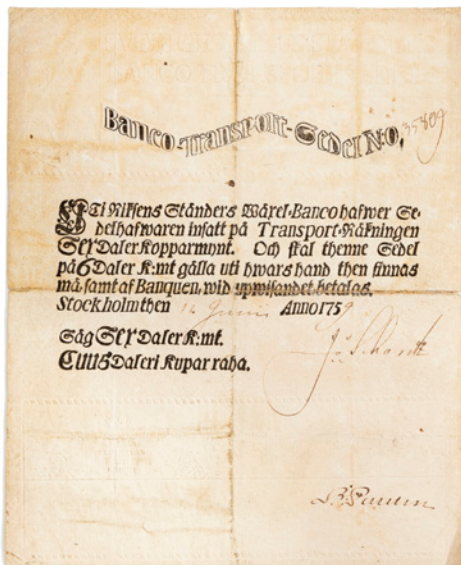 Banco-Transport-Sedel N:o, 35809
Uti Riksens Ständers Wäxel-Banco hafwer Se-
delhafwaren insatt på Transport-Räkningen
Sex Daler Kopparmynt. Och skal thenne Sedel
på 6 Daler K:mt gälla uti hwars hand then finnas
må, samt af Banquen, wid upwisandet betalas.
Stockholm then Junii Anno 1759
Säg Sex Daler K:mt.
Cuusi Daleri Kupar raha.